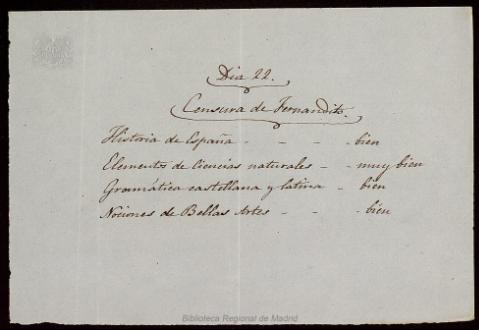 Dia 22.
Censura de Fernandito.
Historia de España - - - - bien
Elementos de Ciencias naturales - - muy bien
Gramática castellana y latina - bien
Nociones de Bellas Artes - - - bien
Biblioteca Regional de Madrid